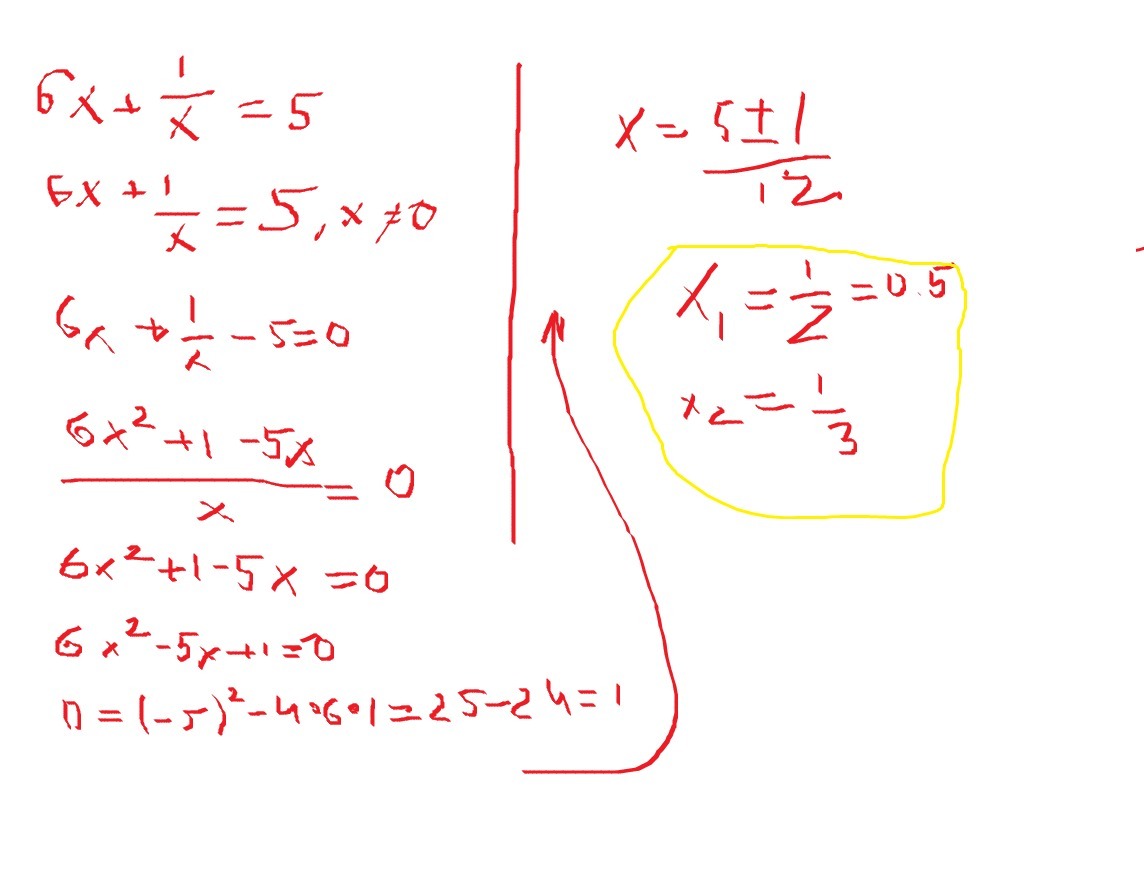 6x + 1/x = 5
6x + 1/x = 5, x ≠ 0
6x + 1/x - 5 = 0
(6x² + 1 - 5x)/x = 0
6x² + 1 - 5x = 0
6x² - 5x + 1 = 0
D = (-5)² - 4·6·1 = 25 - 24 = 1
x = (5 ± 1)/12
x₁ = 1/2 = 0.5
x₂ = 1/3